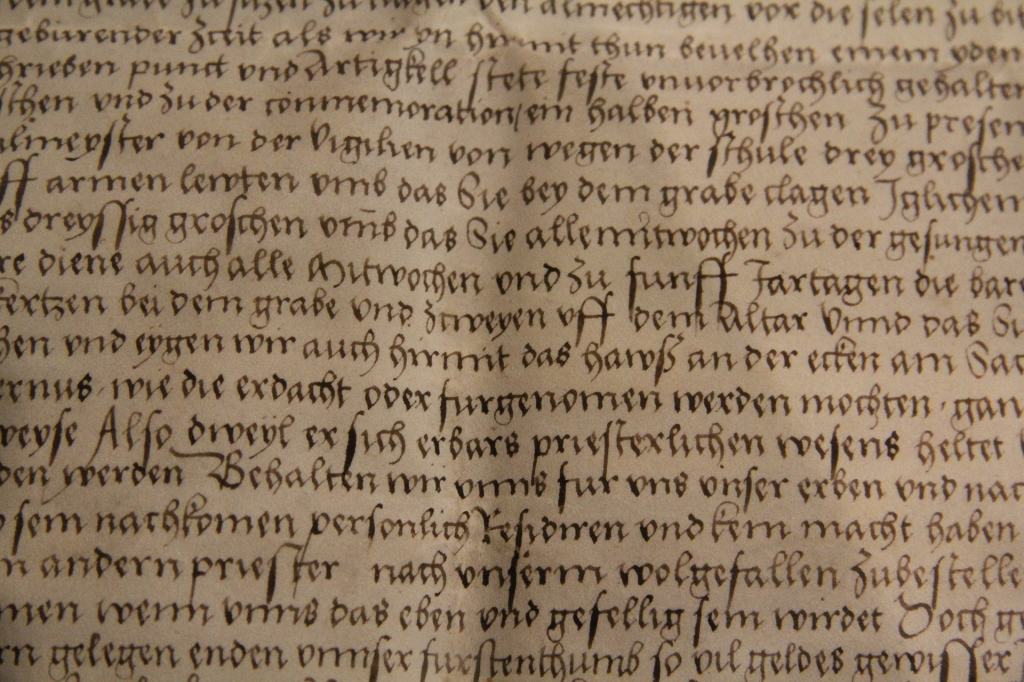 zu sitzen zu den almechtigen vor die selen zu bit
geburender zceit als wir yn hirmit thun beuelhen einem yden
hrieben punct vnd Artigkell stete feste vnuorbrochlich gehalten
schen vnd zu der commemoration ein halben groschen zu presen
almeyster von der Vigilien von wegen der schule drey grosche
ff armen lewten vmb das Sie bey dem grabe clagen Iglichem
s dreyssig groschen vmb das Sie alle mitwochen zu der gesungen
re diene auch alle Mitwochen vnd zu funff Jartagen die bare
kertzen bei dem grabe vnd zcweyen vff dem Altar Vnnd das Si
hen vnd eygen wir auch hirmit das hawß an der ecken am Sac
ernus wie die erdacht oder furgenomen werden mochten gan
weyse Also dweyl er sich erbars priesterlichen wesens heltet
den werden Behalten wir vnns fur vns vnser erben vnd nac
sein nachkomen personlich Residiren vnd kein macht haben
n andern priester nach vnserm wolgefallen zubestelle
men wenn vnns das eben vnd gefellig sein wirdet Doch ge
rn gelegen enden vnnser furstenthumb so vil geldes gewisser